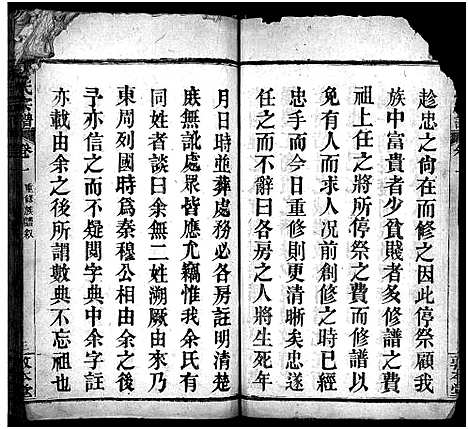 趁忠之尚在而修之因此停祭顧我
族中富貴者少貧賤者多修譜之費
祖上任之將所停祭之費而修譜以
免有人而求讓況前創修之時已經
忠手而今日重修則更清晰矣忠遂
任之而不辭曰余於各房之生死年
月日時並葬處務必各房註明清楚
庶無訛處眾皆應允竊惟我余氏有
同姓者談曰余無二姓溯厥由來乃
東周列國時為秦穆公由余之後
予亦信之而不疑閱字典中余字註
亦載由余之後所謂數典不忘祖也
氏宗譜
卷一
重錄族譜敘
敦本堂